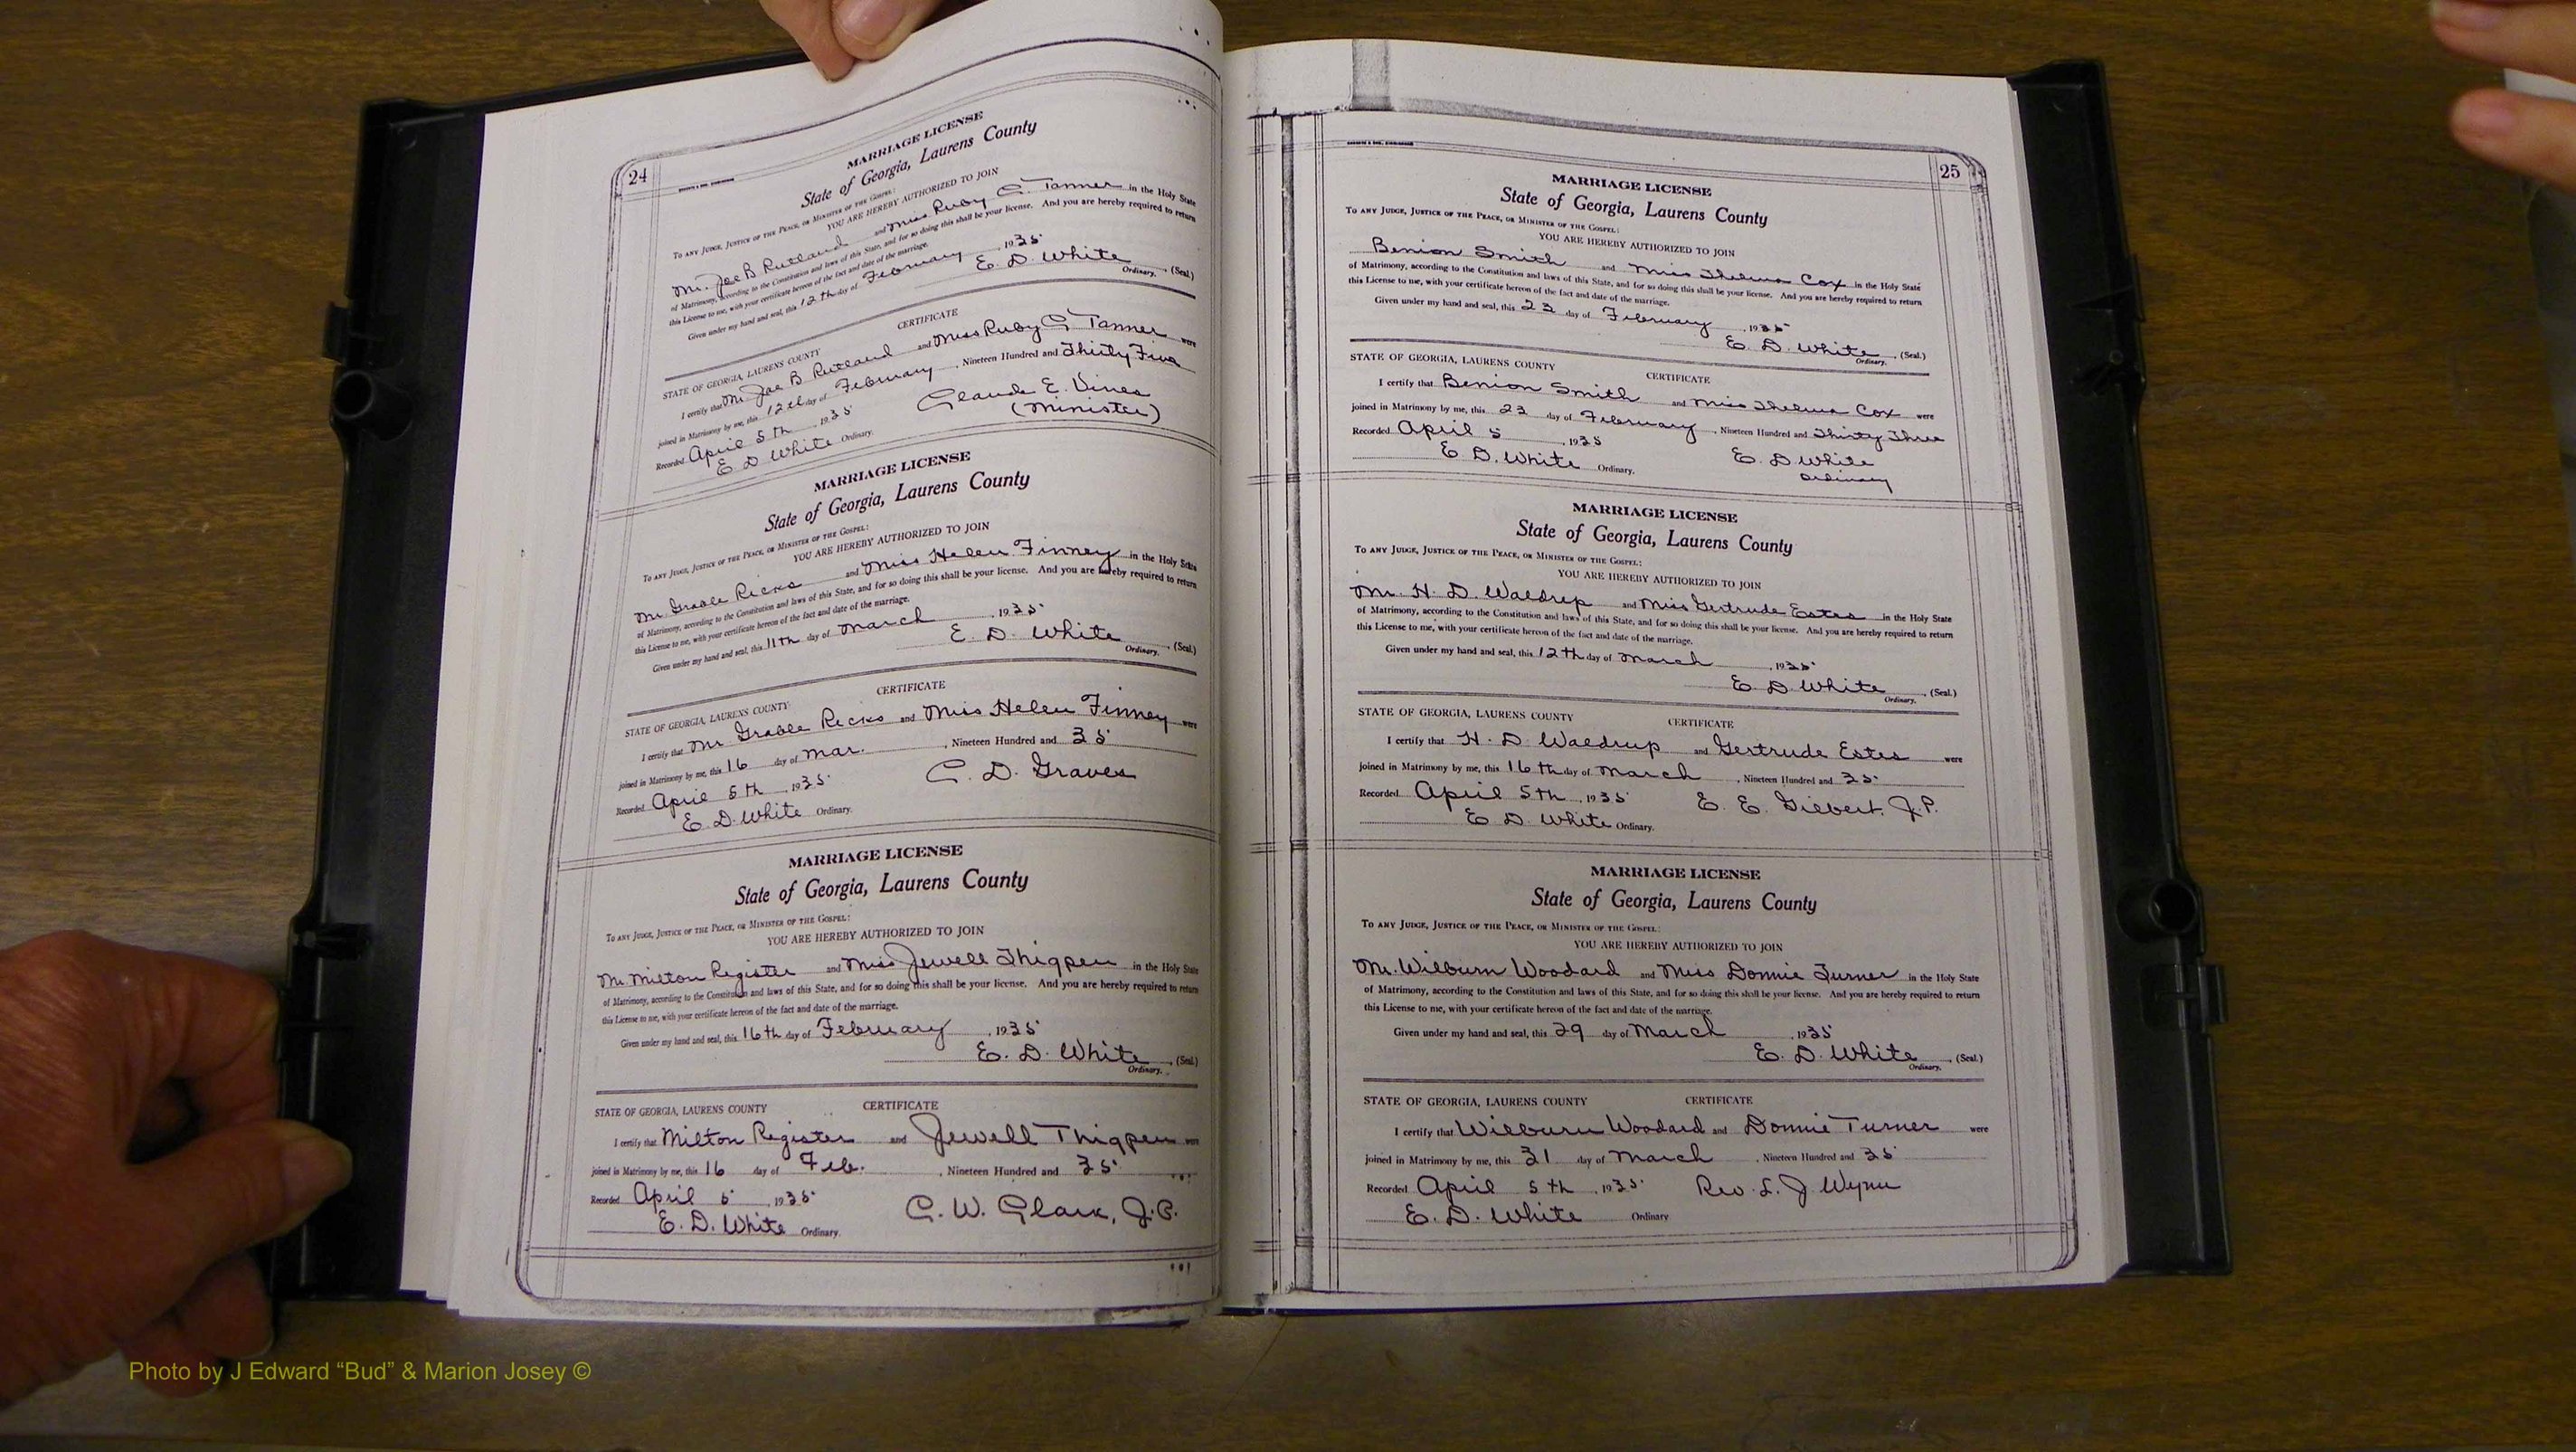 24
MARRIAGE LICENSE
State of Georgia, Laurens County
To any Judge, Justice of the Peace, or Minister of the Gospel:
YOU ARE HEREBY AUTHORIZED TO JOIN
Mr. Joe B Rutland and Miss Ruby C. Tanner in the Holy State
of Matrimony, according to the Constitution and laws of this State, and for so doing this shall be your license. And you are hereby required to return
this License to me, with your certificate hereon of the fact and date of the marriage.
Given under my hand and seal, this 12th day of February, 1935
E. D. White, (Seal.)
Ordinary.
CERTIFICATE
STATE OF GEORGIA, LAURENS COUNTY
I certify that Mr. Joe B Rutland and Miss Ruby C Tanner were
joined in Matrimony by me, this 12th day of February, Nineteen Hundred and Thirty Five
Recorded April 5th, 1935
Claude E. Vines
(Minister)
E D White Ordinary.
MARRIAGE LICENSE
State of Georgia, Laurens County
To any Judge, Justice of the Peace, or Minister of the Gospel:
YOU ARE HEREBY AUTHORIZED TO JOIN
Mr Grable Ricks and Miss Helen Finney in the Holy State
of Matrimony, according to the Constitution and laws of this State, and for so doing this shall be your license. And you are hereby required to return
this License to me, with your certificate hereon of the fact and date of the marriage.
Given under my hand and seal, this 11th day of March, 1935
E. D. White, (Seal.)
Ordinary.
CERTIFICATE
STATE OF GEORGIA, LAURENS COUNTY
I certify that Mr Grable Ricks and Miss Helen Finney were
joined in Matrimony by me, this 16 day of Mar., Nineteen Hundred and 35
Recorded April 5th, 1935
C. D. Graves
E. D. White Ordinary.
MARRIAGE LICENSE
State of Georgia, Laurens County
To any Judge, Justice of the Peace, or Minister of the Gospel:
YOU ARE HEREBY AUTHORIZED TO JOIN
Mr. Milton Register and Miss Jewell Thigpen in the Holy State
of Matrimony, according to the Constitution and laws of this State, and for so doing this shall be your license. And you are hereby required to return
this License to me, with your certificate hereon of the fact and date of the marriage.
Given under my hand and seal, this 16th day of February, 1935
E. D. White, (Seal.)
Ordinary.
STATE OF GEORGIA, LAURENS COUNTY CERTIFICATE
I certify that Milton Register and Jewell Thigpen were
joined in Matrimony by me, this 16 day of Feb., Nineteen Hundred and 35
Recorded April 5, 1935
C. W. Clark, J.P.
E. D. White Ordinary.
25
MARRIAGE LICENSE
State of Georgia, Laurens County
To any Judge, Justice of the Peace, or Minister of the Gospel:
YOU ARE HEREBY AUTHORIZED TO JOIN
Benion Smith and Miss Thelma Cox in the Holy State
of Matrimony, according to the Constitution and laws of this State, and for so doing this shall be your license. And you are hereby required to return
this License to me, with your certificate hereon of the fact and date of the marriage.
Given under my hand and seal, this 23 day of February, 1935
E. D. White, (Seal.)
Ordinary.
STATE OF GEORGIA, LAURENS COUNTY CERTIFICATE
I certify that Benion Smith and Miss Thelma Cox were
joined in Matrimony by me, this 23 day of February, Nineteen Hundred and Thirty Three
Recorded April 5, 1935
E. D. White Ordinary.
E. D White
Ordinary
MARRIAGE LICENSE
State of Georgia, Laurens County
To any Judge, Justice of the Peace, or Minister of the Gospel:
YOU ARE HEREBY AUTHORIZED TO JOIN
Mr. H. D. Waldrep and Miss Gertrude Estes in the Holy State
of Matrimony, according to the Constitution and laws of this State, and for so doing this shall be your license. And you are hereby required to return
this License to me, with your certificate hereon of the fact and date of the marriage.
Given under my hand and seal, this 12th day of March, 1935
E. D White, (Seal.)
Ordinary.
STATE OF GEORGIA, LAURENS COUNTY CERTIFICATE
I certify that H. D Waldrup and Gertrude Estes were
joined in Matrimony by me, this 16th day of March, Nineteen Hundred and 35
Recorded April 5th, 1935 E. E. Gilbert, J.P.
E D White Ordinary.
MARRIAGE LICENSE
State of Georgia, Laurens County
To any Judge, Justice of the Peace, or Minister of the Gospel:
YOU ARE HEREBY AUTHORIZED TO JOIN
Mr. Wilburn Woodard and Miss Donnie Turner in the Holy State
of Matrimony, according to the Constitution and laws of this State, and for so doing this shall be your license. And you are hereby required to return
this License to me, with your certificate hereon of the fact and date of the marriage.
Given under my hand and seal, this 29 day of March, 1935
E. D. White, (Seal.)
Ordinary.
STATE OF GEORGIA, LAURENS COUNTY CERTIFICATE
I certify that Wilburn Woodard and Donnie Turner were
joined in Matrimony by me, this 31 day of March, Nineteen Hundred and 35
Recorded April 5th, 1935 Rev. L. J. Wynn
E. D. White Ordinary
Photo by J Edward “Bud” & Marion Josey ©